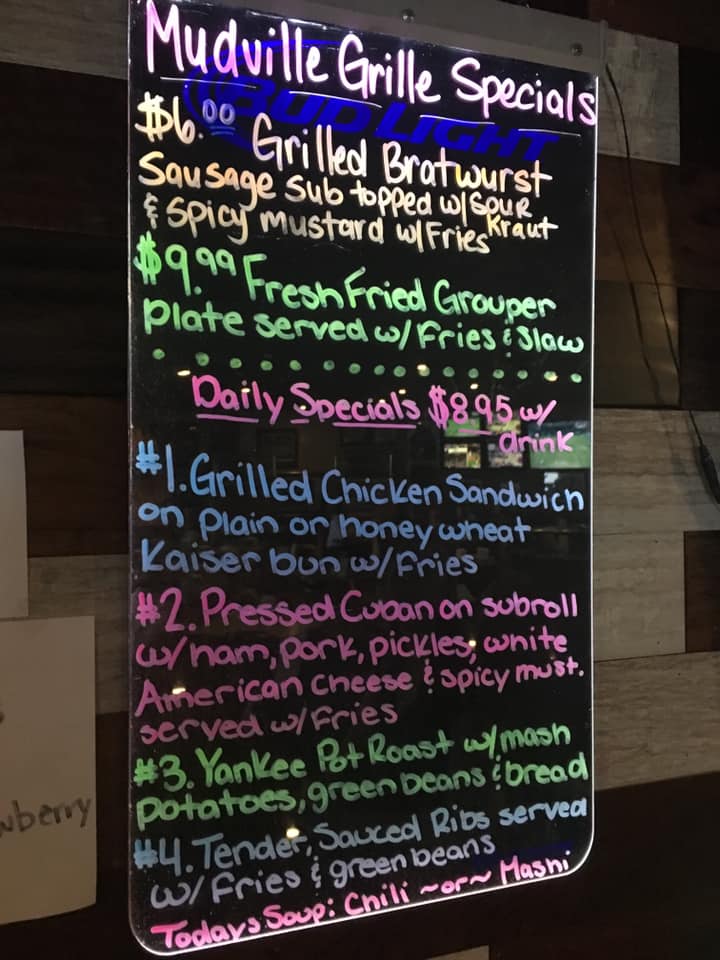 Mudville Grille Specials
BUD LIGHT
$6.00 Grilled Bratwurst
Sausage Sub topped w/ Sour
Kraut
& Spicy mustard w/Fries
$9.99 Fresh Fried Grouper
Plate served w/ Fries & Slaw
Daily Specials $8.95 w/
drink
#1. Grilled Chicken Sandwich
on Plain or honey wheat
Kaiser bun w/Fries
#2. Pressed Cuban on subroll
w/ ham, pork, pickles, white
American Cheese & spicy must.
served w/ Fries
#3. Yankee Pot Roast w/ mash
Potatoes, green beans & bread
#4. Tender, Sauced Ribs served
w/ Fries & green beans
Todays Soup: Chili ~or~ Mashi